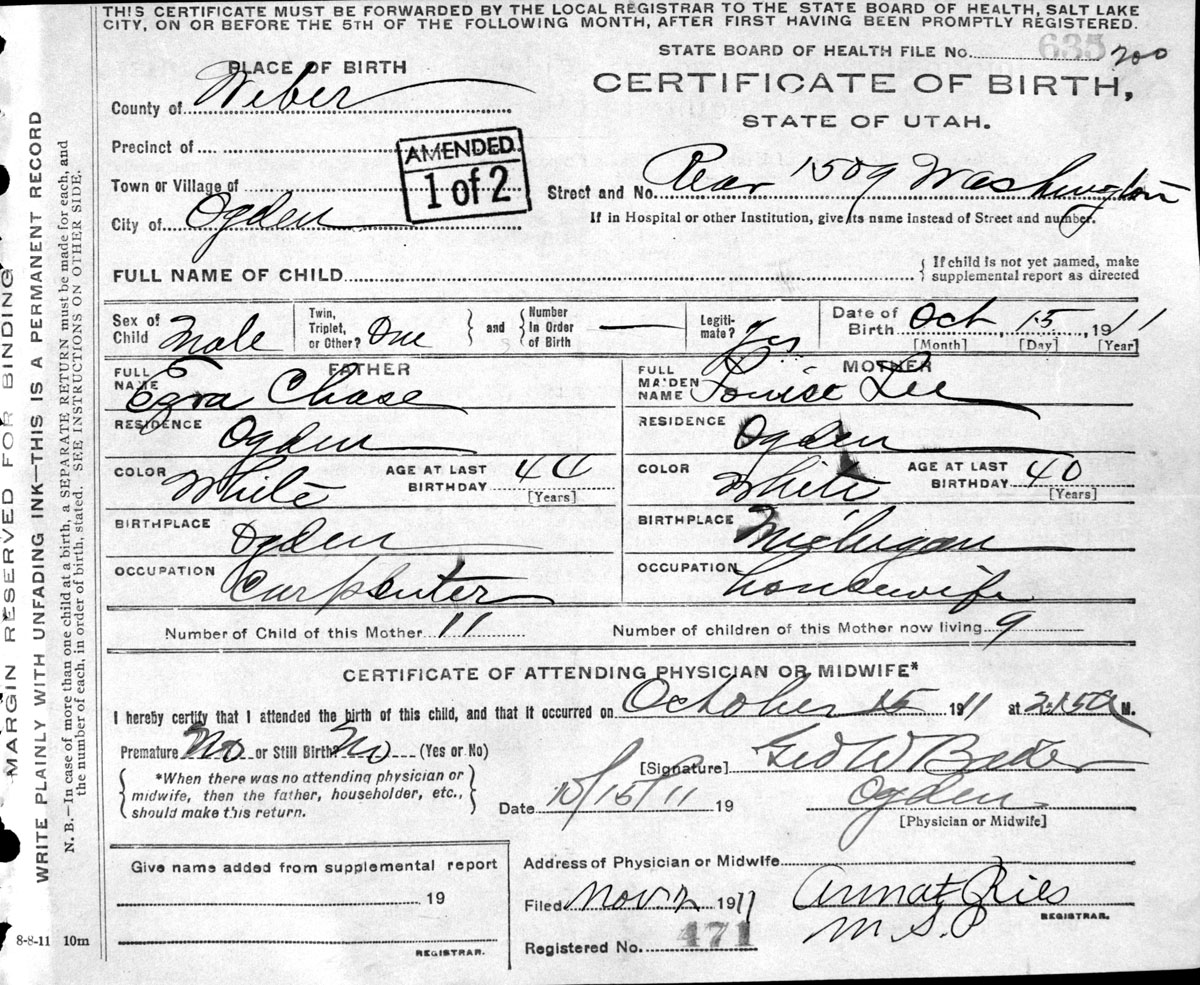 THIS CERTIFICATE MUST BE FORWARDED BY THE LOCAL REGISTRAR TO THE STATE BOARD OF HEALTH, SALT LAKE
CITY, ON OR BEFORE THE 5TH OF THE FOLLOWING MONTH, AFTER FIRST HAVING BEEN PROMPTLY REGISTERED.
STATE BOARD OF HEALTH FILE No. 635 200
PLACE OF BIRTH
CERTIFICATE OF BIRTH,
STATE OF UTAH.
County of Weber
Precinct of
AMENDED
1 of 2
Town or Village of
Street and No. Rear 1509 Washington
City of Ogden
If in Hospital or other Institution, give its name instead of Street and number.
FULL NAME OF CHILD
{ If child is not yet named, make
supplemental report as directed
Sex of Child Male
Twin, Triplet, or Other? One
and
Number In Order of Birth —
Legiti-mate? Yes
Date of Birth Oct 15, 1911
[Month] [Day] [Year]
FATHER
FULL NAME Ezra Chase
MOTHER
FULL MAIDEN NAME Louise Lee
RESIDENCE Ogden
RESIDENCE Ogden
COLOR White
AGE AT LAST BIRTHDAY 44 [Years]
COLOR White
AGE AT LAST BIRTHDAY 40 [Years]
BIRTHPLACE Ogden
BIRTHPLACE Michigan
OCCUPATION Carpenter
OCCUPATION housewife
Number of Child of this Mother 11
Number of children of this Mother now living 9
CERTIFICATE OF ATTENDING PHYSICIAN OR MIDWIFE*
I hereby certify that I attended the birth of this child, and that it occurred on October 15 1911 at 2:15 A M.
Premature No or Still Birth? No (Yes or No)
*When there was no attending physician or
midwife, then the father, householder, etc.,
should make this return.
[Signature] Geo W
Date 10/15/11 19
Ogden
[Physician or Midwife]
Give name added from supplemental report
19
REGISTRAR.
Address of Physician or Midwife
Filed Nov 2 1911
REGISTRAR.
Registered No. 471
8-8-11 10m
MARGIN RESERVED FOR BINDING
WRITE PLAINLY WITH UNFADING INK—THIS IS A PERMANENT RECORD
N. B.—In case of more than one child at a birth, a SEPARATE RETURN must be made for each, and
the number of each, in order of birth, stated. SEE INSTRUCTIONS ON OTHER SIDE.